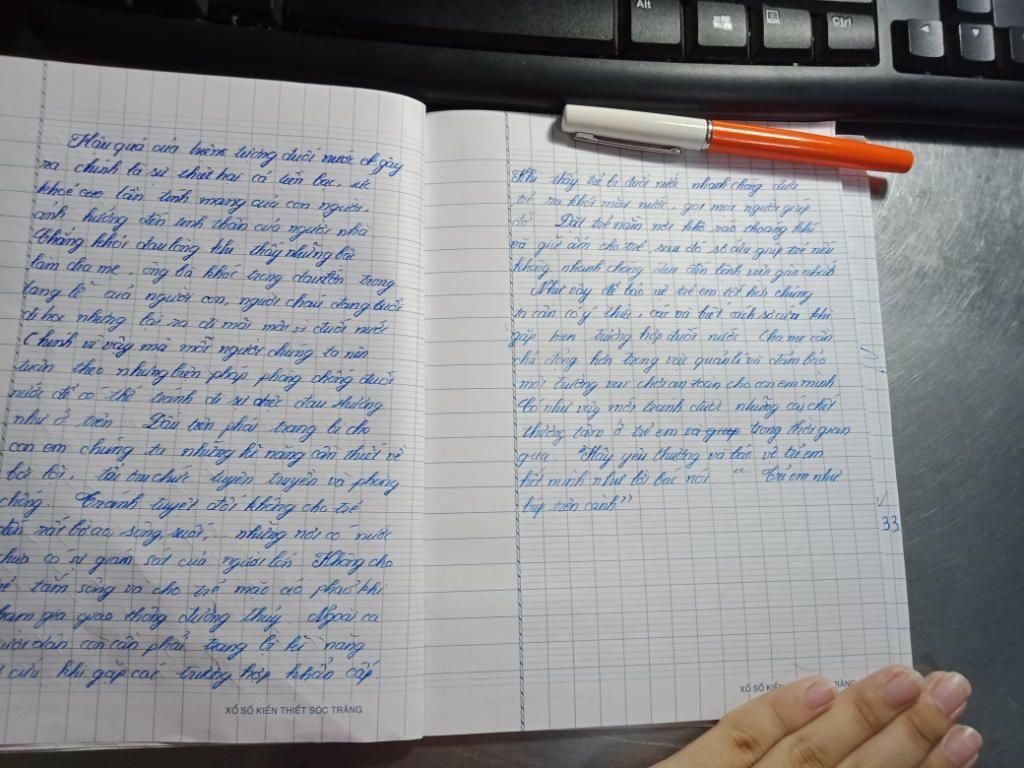 Hậu quả của hiện tượng đuối nước đã gây
ra chính là sự thiệt hại cả tiền bạc, sức
khoẻ cao lần tính mạng của con người,
ảnh hưởng đến tinh thần của người nhà
Chẳng khỏi đau lòng khi thấy những bậc
làm cha mẹ, ông bà khóc trong đau đớn trong
tang lễ của người con, người cháu đang tuổi
đi học nhưng lại ra đi mãi mãi vì đuối nước
Chính vì vậy mà mỗi người chúng ta nên
tuân theo những biện pháp phòng chống đuối
nước để có thể tránh đi sự chết đau thương
như ở trên. Đầu tiên phải trang bị cho
con em chúng ta những kĩ năng cần thiết về
bơi lội, tổ chức tuyên truyền và phòng
chống. Tránh tuyệt đối không cho trẻ
đến gần bờ ao, sông, suối, ... những nơi có nước
chưa có sự giám sát của người lớn Không cho
tắm sông và cho trẻ mặc áo phao khi
tham gia giao thông đường thuỷ. Ngoài ra
người dân còn cần phải trang bị kĩ năng
cứu khi gặp các trường hợp khẩn cấp.
XỔ SỐ KIẾN THIẾT SÓC TRĂNG
Khi thấy trẻ bị đuối nước nhanh chóng đưa
trẻ ra khỏi mặt nước, gọi mọi người giúp
đỡ. Đặt trẻ nằm nơi khô ráo thoáng khí
và giữ ấm cho trẻ sau đó sơ cứu giúp trẻ nếu
không nhanh chóng đưa đến bệnh viện gần nhất
Như vậy để bảo vệ trẻ em tốt hơn chúng
ta cần có ý thức, và biết cách sơ cứu khi
gặp trường hợp đuối nước. Cha mẹ cần
chủ động hơn trong việc quản lí và đảm bảo
môi trường vui chơi an toàn cho con em mình
Có như vậy mới tránh được những cái chết
thương tâm ở trẻ em trong thời gian
qua. "Hãy yêu thương và bảo vệ trẻ em
hết mình như lời bác nói "Trẻ em như
búp trên cành"
33
XỔ SỐ KIẾN TRĂNG
Alt
Ctrl